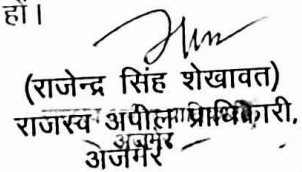 हों।
(राजेन्द्र सिंह शेखावत)
राजस्व अपील प्राधिकारी,
अजमेर
अजमेर